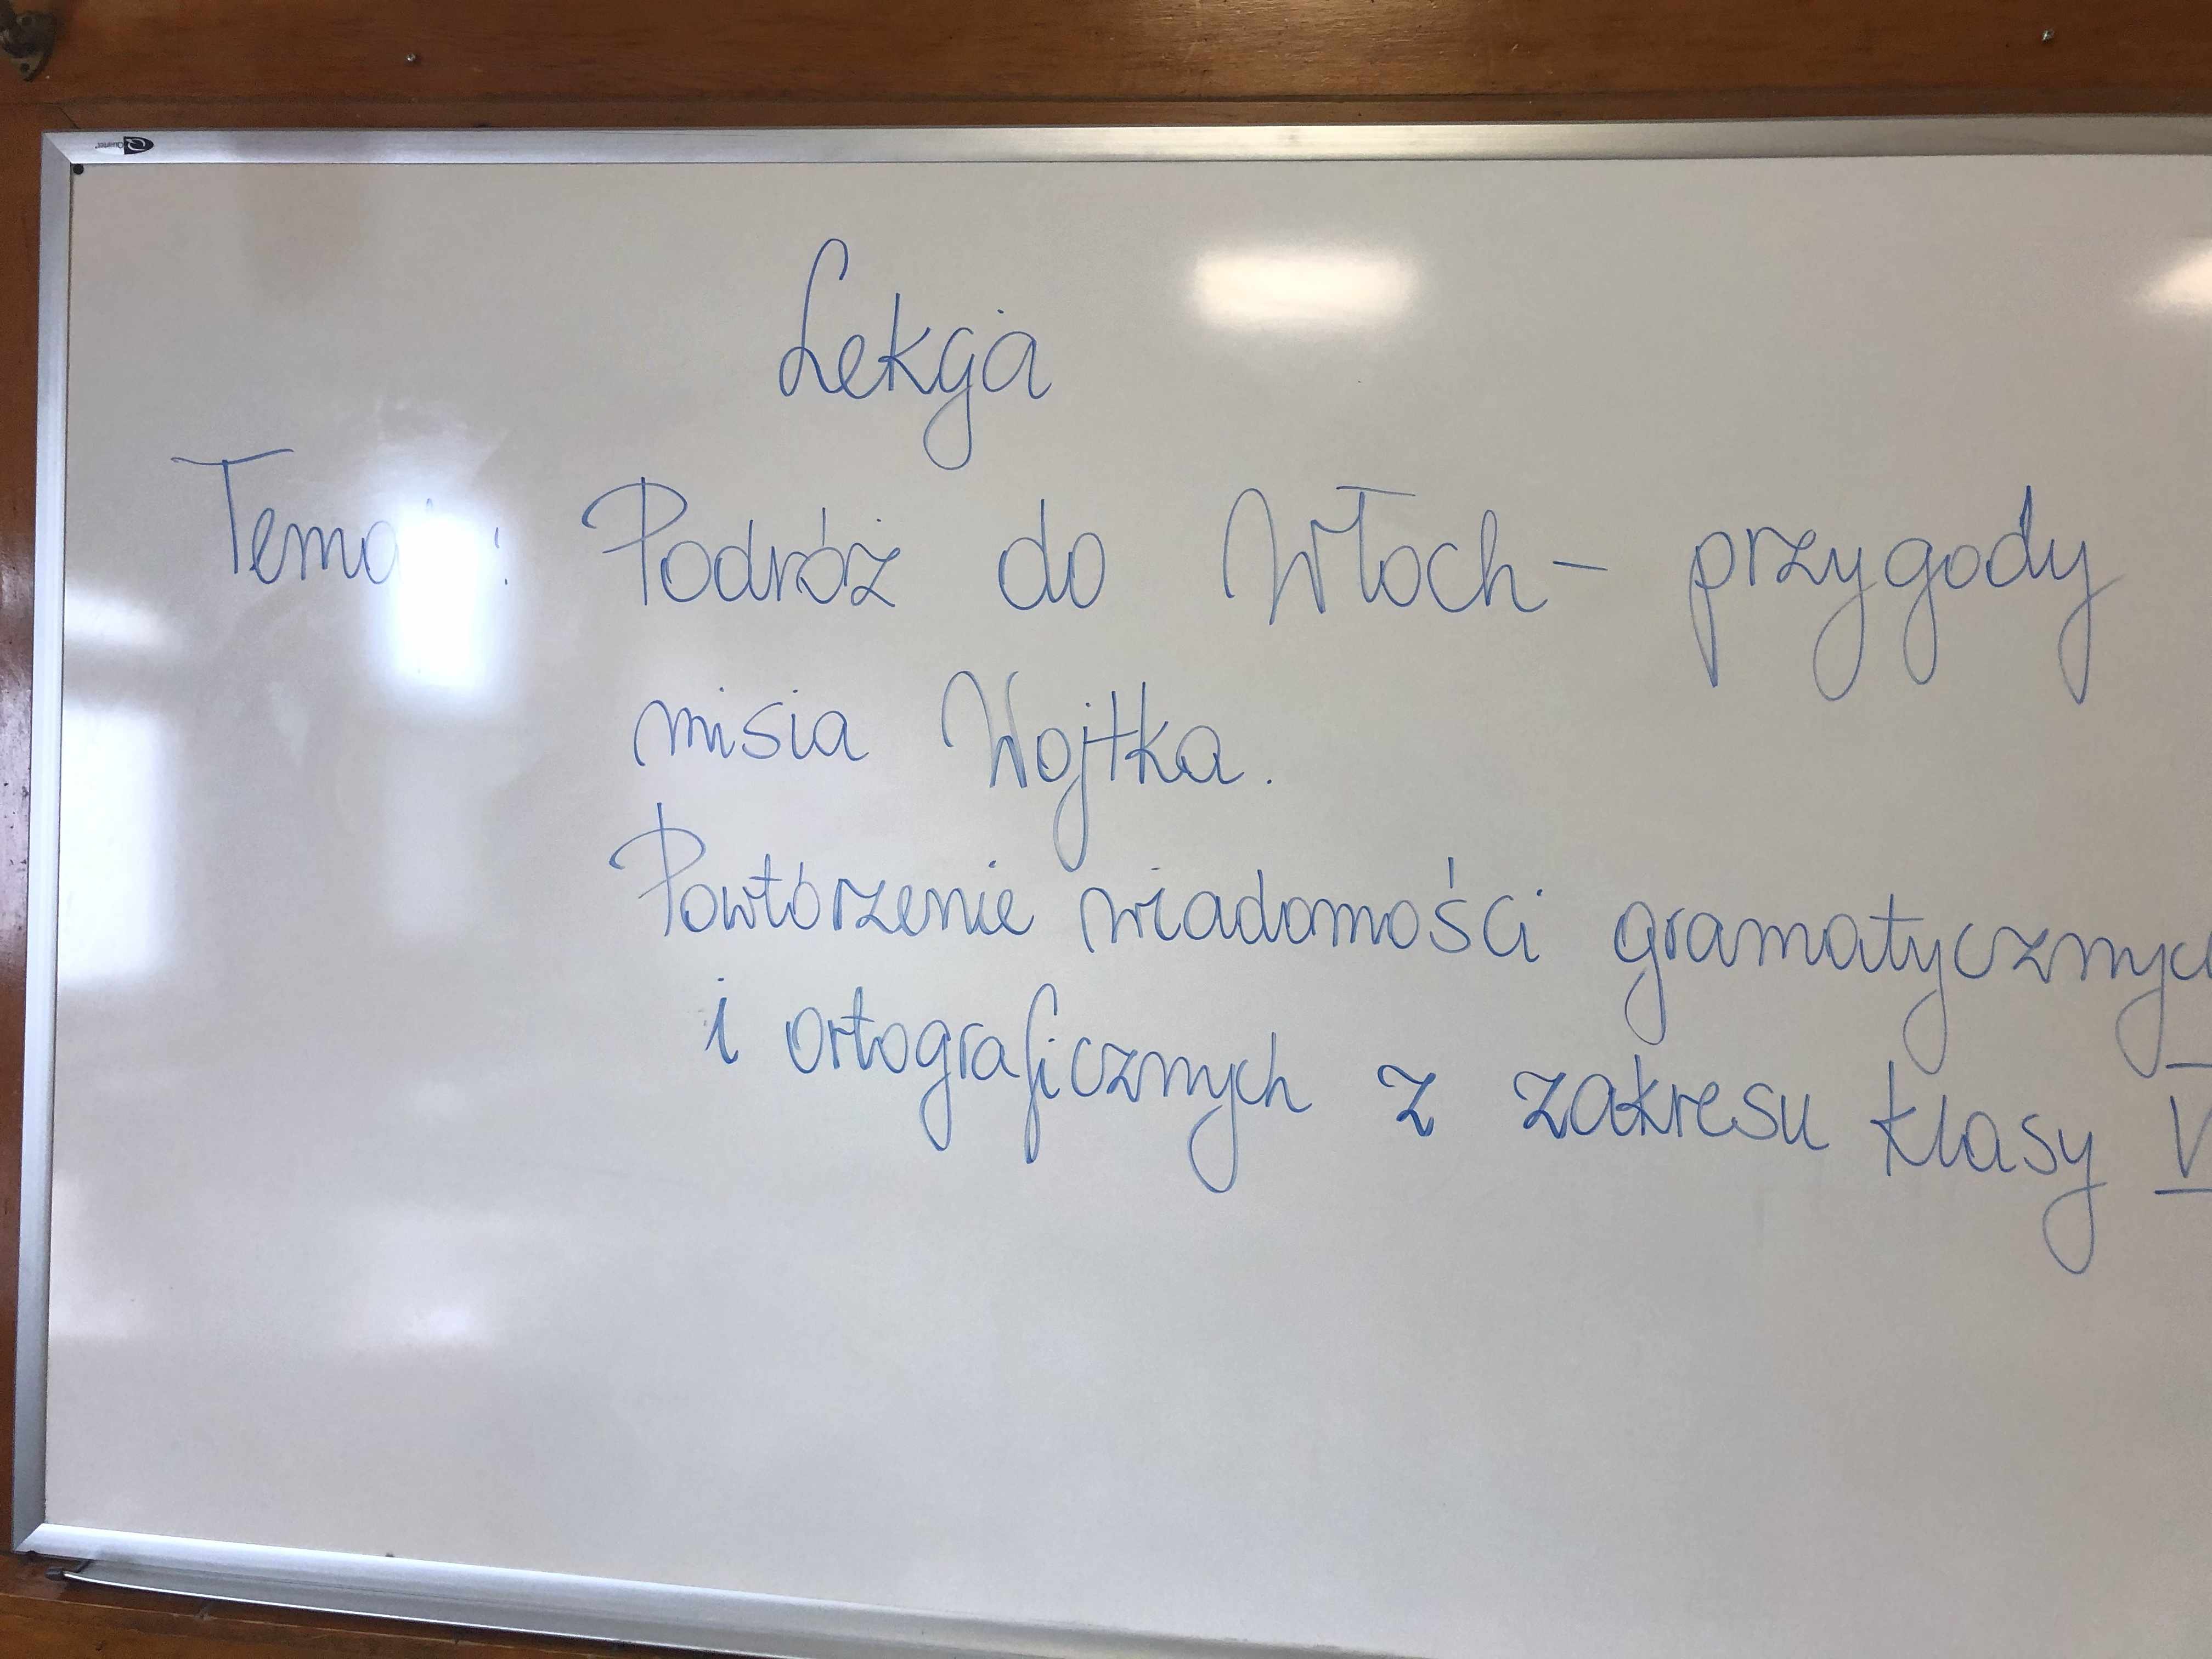 Lekcja
Temat: Podróż do Włoch - przygody
misia Wojtka.
Powtórzenie wiadomości gramatycznyc
i ortograficznych z zakresu klasy V